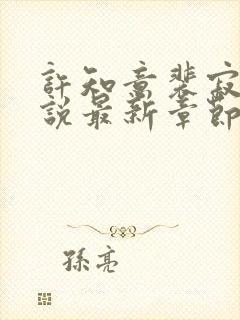 許知意裴寂
說最新章節
孫亮